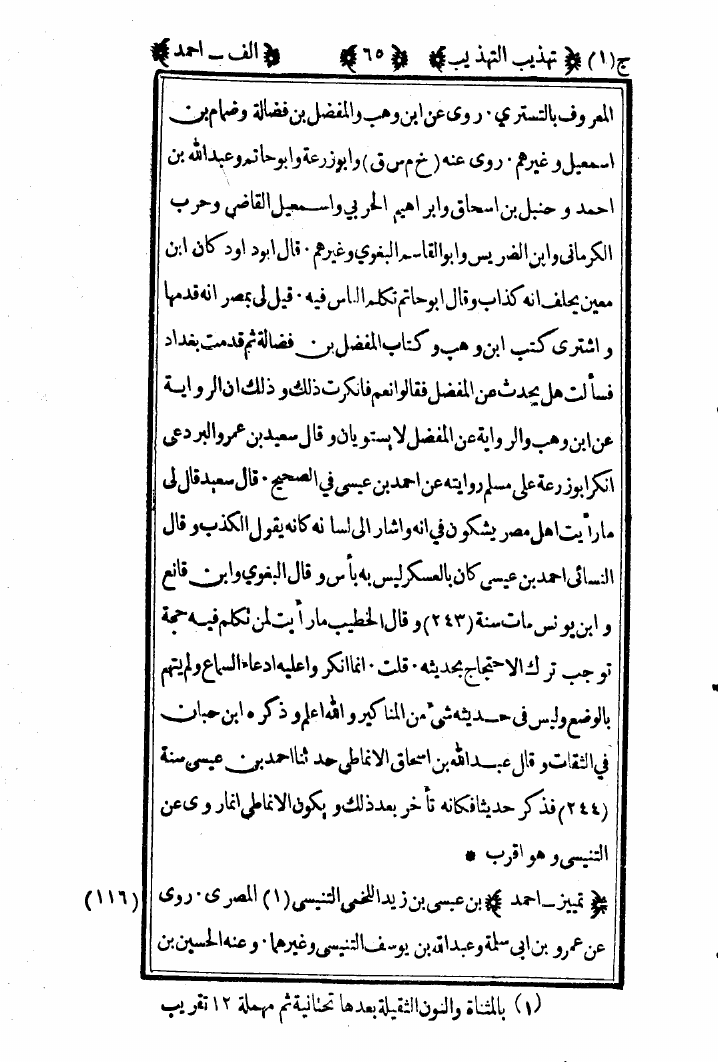 ج(١) ﴿ تهذيب التهذيب ﴾ ﴿ ٦٥ ﴾ ﴿ الف ـ احمد ﴾
المعروف بالتستري ۰ روى عن ابن وهب والمفضل بن فضالة وضمام بن
اسمعيل وغيرهم ۰ روى عنه (خ م س ق) وابوزرعة وابوحاتم وعبدالله بن
احمد و حنبل بن اسحاق وابراهيم الحربي واسمعيل القاضي وحرب
الكرماني وابن الضريس وابوالقاسم البغوي وغيرهم ۰ قال ابوداود كان ابن
معين يحلف انه كذاب وقال ابوحاتم تكلم الناس فيه ۰ قيل لى بمصر انه قدمها
واشترى كتب ابن وهب وكتاب المفضل بن فضالة ثم قدمت بغداد
فسألت هل يحدث عن المفضل فقالوا نعم فانكرت ذلك و ذلك ان الرواية
عن ابن وهب والرواية عن المفضل لا يستويان و قال سعيد بن عمرو البردعى
انكر ابوزرعة على مسلم روايته عن احمد بن عيسى في الصحيح ۰ قال سعيد قال لى
ما رأيت اهل مصر يشكون في انه واشار الى لسانه كانه يقول الكذب و قال
النسائى احمد بن عيسى كان بالعسكر ليس به بأس و قال البغوي وابن قانع
و ابن يونس مات سنة (٢٤٣) و قال الخطيب ما رأيت لمن تكلم فيه حجة
توجب ترك الاحتجاج بحديثه ۰ قلت ۰ انما انكروا عليه ادعاء السماع ولم يتهم
بالوضع وليس فى حديثه شئ من المناكير و الله اعلم و ذكره ابن حبان
في الثقات و قال عبدالله بن اسحاق الانماطى حدثنا احمد بن عيسى سنة
(٢٤٤) فذكر حديثا فكانه تأخر بعد ذلك و يكون الانماطي انما روى عن
التنيسى و هو اقرب *
﴿ تمييز ـ احمد ﴾ بن عيسى بن زيد اللخمى التنيسى (١) المصرى ۰ روى (١١٦)
عن عمرو بن ابى سلمة وعبدالله بن يوسف التنيسى وغيرهما ۰ و عنه الحسين بن
(١) بالمثناة والنون الثقيلة بعدها تحتانية ثم مهملة ١٢ تقريب